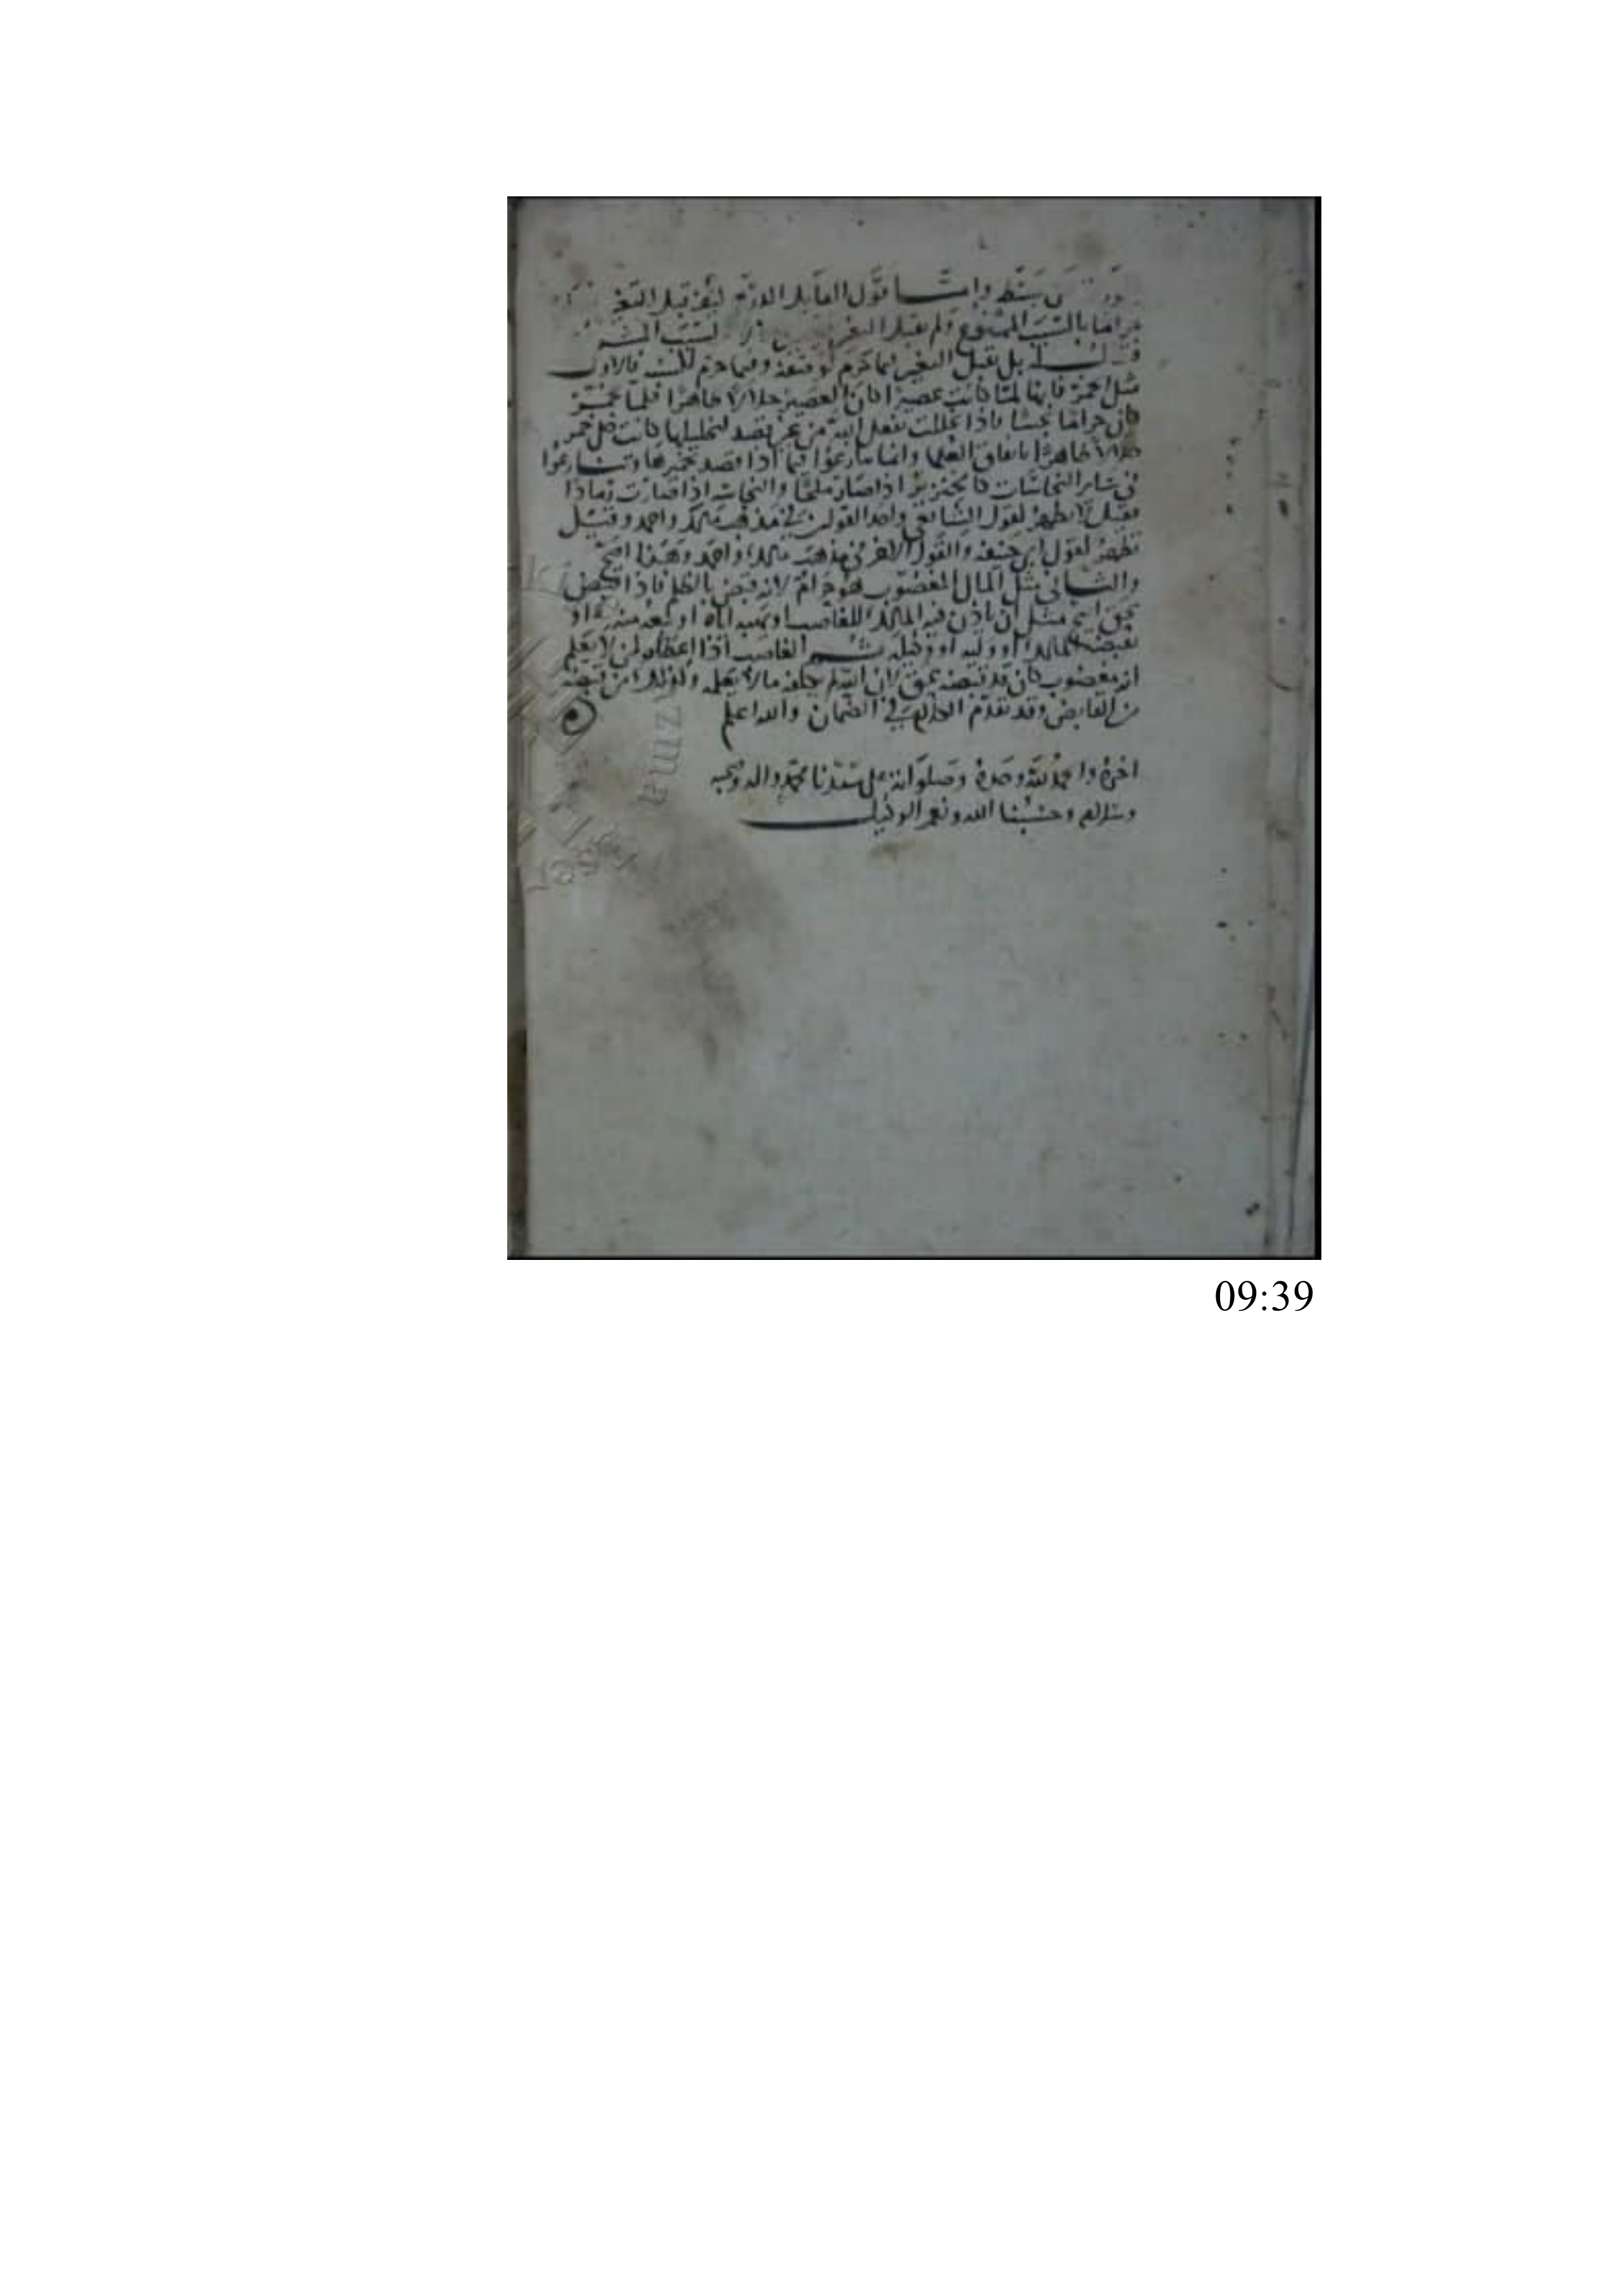 بسط واما قول القايل الدرهم كيف قبل التغير
حراما بالسبب الممنوع ولم يقبل التغير لسبب
قيل بل قبل التغير فيما حرم لوصفه وفيما حرم لكسبه فالاول
مثل الخمرة فانها لما كانت عصيرا كان العصير حلالا طاهرا فلما تخمر
كان حراما نجسا فاذا تخللت بفعل الله من غير قصد لتخليلها كانت خل خمر
حلالا طاهرا باتفاق العلما وانما تنازعوا فيما اذا قصد تخميرها وتنازعوا
في ساير النجاسات كالخنزير اذا صار ملحا والنجاسة اذا صارت رمادا
فقيل لا يطهر كقول الشافعي واحد القولين في مذهب مالك واحمد وقيل
يطهر كقول ابي حنيفة والقول الاخر في مذهب مالك واحمد وهذا اصح
والثاني مثل المال المغصوب هو حرام لانه قبض بالظلم فاذا قبض
بحق ابيح مثل ان ياذن فيه المالك للغاصب او يهبه اياه او يبيعه منه او
يقبضه المالك او وليه او وكيله ثم الغاصب اذا اعطاه لمن لا يعلم
انه مغصوب كان قد قبضه بحق لان الله لم يكلفه ما لا يعلمه وكذلك من قبضه
من القابض وقد تقدم الكلام في الضمان والله اعلم
اخره والحمد لله وحده وصلواته على سيدنا محمد واله وصحبه
وسلامه وحسبنا الله ونعم الوكيل
09:39